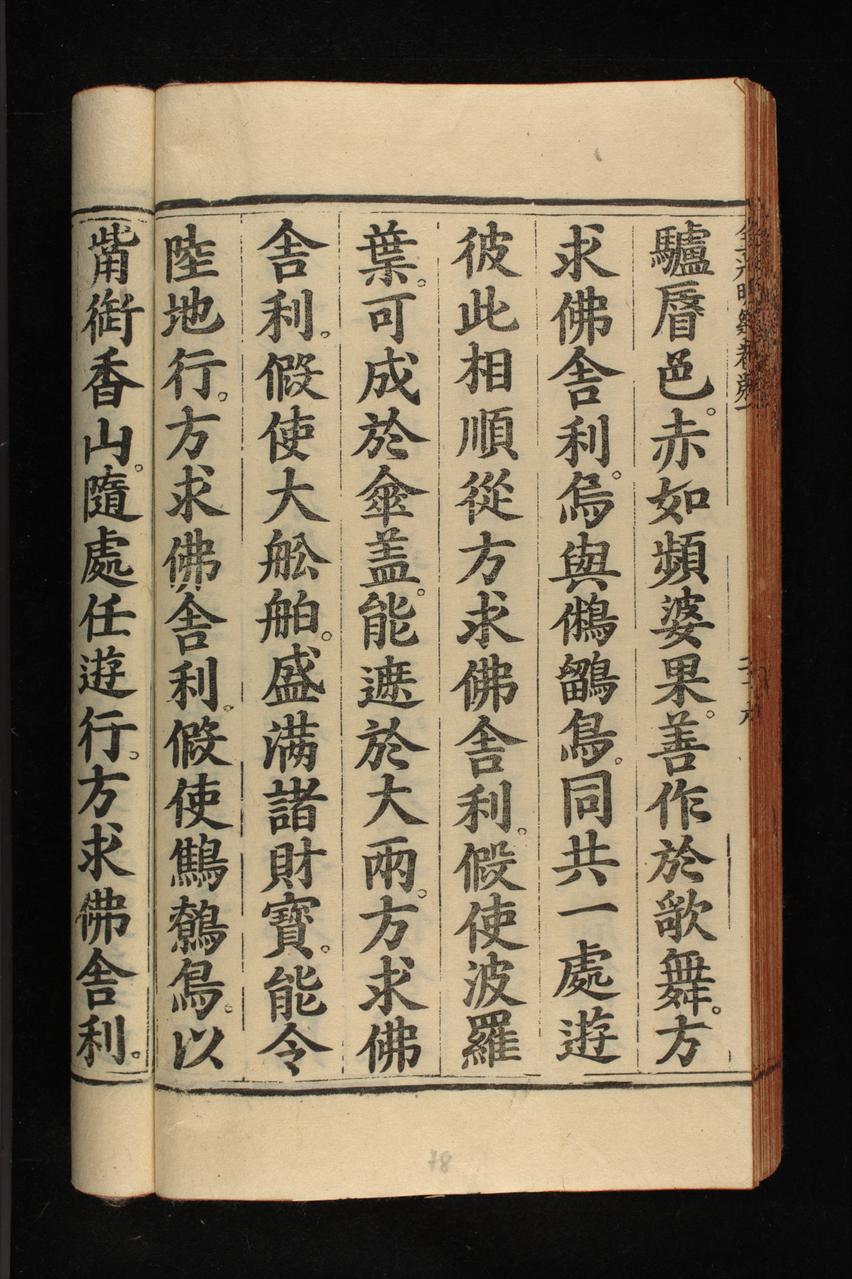 驢脣色。赤如頻婆果。善作於歌舞。方
求佛舍利。烏與鵂鶹鳥。同共一處遊
彼此相順從方求佛舍利。假使波羅
葉。可成於傘蓋。能遮於大雨。方求佛
舍利。假使大舩舶。盛滿諸財寶。能令
陸地行。方求佛舍利。假使鷦鷯鳥。以
觜銜香山。隨處任遊行。方求佛舍利。
78